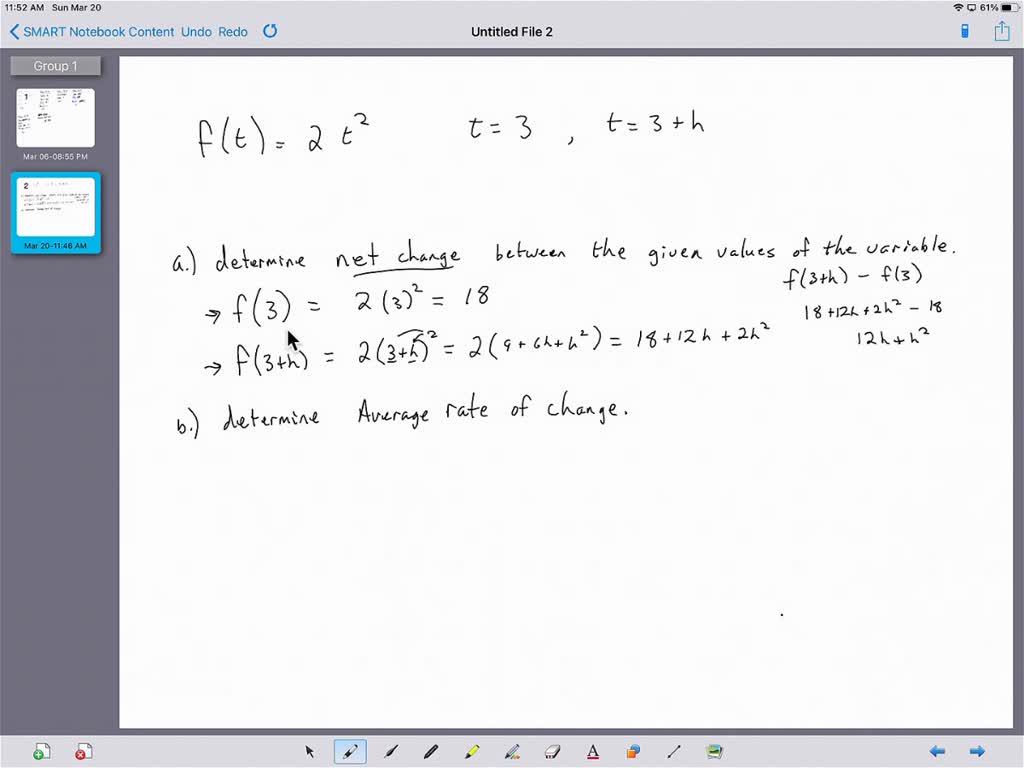 11:52 AM Sun Mar 20
61%
SMART Notebook Content Undo Redo
Untitled File 2
Group 1
1
Mar 06-08:55 PM
2
Mar 20-11:46 AM
f(t) = 2 t² t = 3 , t = 3 + h
a.) determine net change between the given values of the variable.
f(3+h) - f(3)
→ f(3) = 2(3)² = 18
18+12h+2h² - 18
→ f(3+h) = 2(3+h)² = 2(9+6h+h²) = 18+12h+2h²
12h+h²
b.) determine Average rate of change.
A